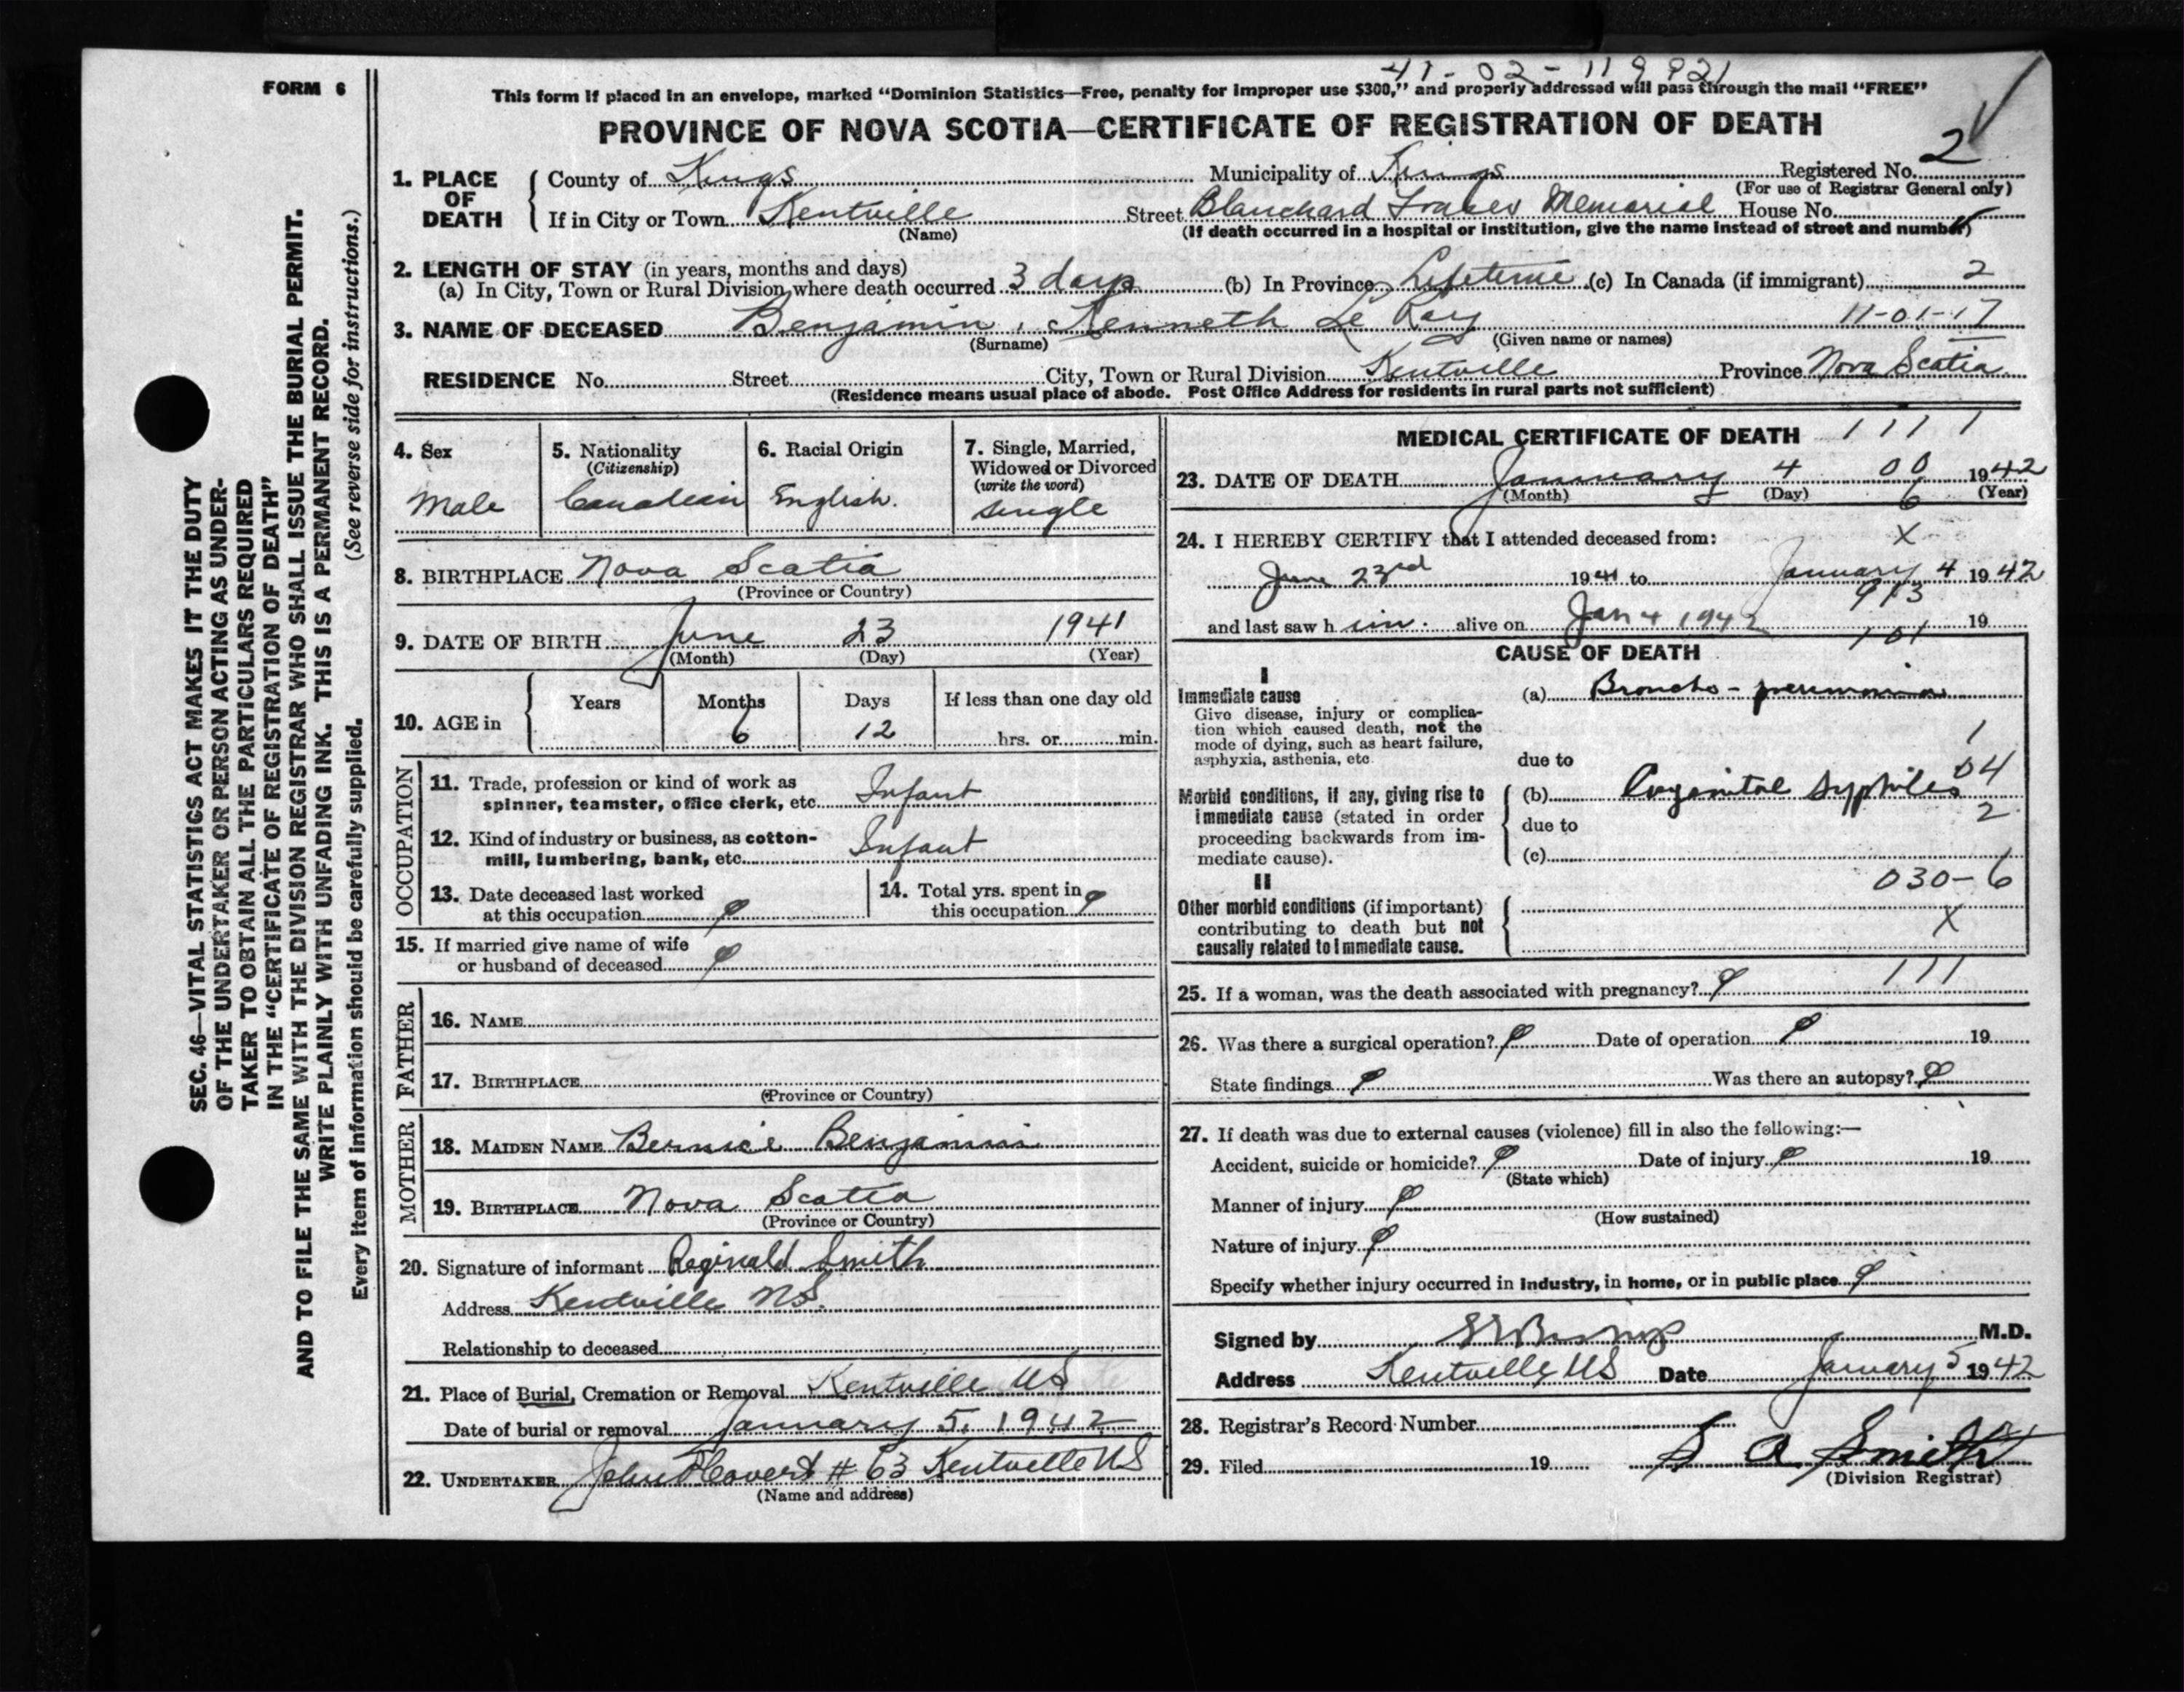 FORM 6
41-02-119921
This form if placed in an envelope, marked "Dominion Statistics—Free, penalty for improper use $300," and properly addressed will pass through the mail "FREE"
PROVINCE OF NOVA SCOTIA—CERTIFICATE OF REGISTRATION OF DEATH
1. PLACE OF DEATH
County of Kings Municipality of Kings Registered No. 2
(For use of Registrar General only)
If in City or Town Kentville Street Blanchard Fraser Memorial House No.
(Name) (If death occurred in a hospital or institution, give the name instead of street and number)
2. LENGTH OF STAY (in years, months and days)
(a) In City, Town or Rural Division where death occurred 3 days (b) In Province Lifetime (c) In Canada (if immigrant) 2
3. NAME OF DECEASED Benjamin, Kenneth Le Roy 11-01-17
(Surname) (Given name or names)
RESIDENCE No. Street City, Town or Rural Division Kentville Province Nova Scotia
(Residence means usual place of abode. Post Office Address for residents in rural parts not sufficient)
4. Sex
Male
5. Nationality
(Citizenship)
Canadian
6. Racial Origin
English.
7. Single, Married,
Widowed or Divorced
(write the word)
single
8. BIRTHPLACE Nova Scotia
(Province or Country)
9. DATE OF BIRTH June 23 1941
(Month) (Day) (Year)
10. AGE in
Years Months Days If less than one day old
6 12 hrs. or min.
OCCUPATION
11. Trade, profession or kind of work as
spinner, teamster, office clerk, etc. Infant
12. Kind of industry or business, as cotton-
mill, lumbering, bank, etc. Infant
13. Date deceased last worked
at this occupation
14. Total yrs. spent in
this occupation
15. If married give name of wife
or husband of deceased
FATHER
16. NAME
17. BIRTHPLACE
(Province or Country)
MOTHER
18. MAIDEN NAME Bernice Benjamin
19. BIRTHPLACE Nova Scotia
(Province or Country)
20. Signature of informant Reginald Smith
Address Kentville NS.
Relationship to deceased
21. Place of Burial, Cremation or Removal Kentville NS
Date of burial or removal January 5, 1942
22. UNDERTAKER # 63 Kentville NS
(Name and address)
MEDICAL CERTIFICATE OF DEATH 111 1
23. DATE OF DEATH January 4 00 1942
(Month) (Day) 6 (Year)
24. I HEREBY CERTIFY that I attended deceased from: X
June 23rd 1941 to January 4 1942
913
and last saw h im alive on Jan 4 1942 19
101
CAUSE OF DEATH
I
Immediate cause
Give disease, injury or complica-
tion which caused death, not the
mode of dying, such as heart failure,
asphyxia, asthenia, etc.
(a) Broncho-pneumonia
1
due to
Morbid conditions, if any, giving rise to
immediate cause (stated in order
proceeding backwards from im-
mediate cause).
(b) Congenital Syphilis 04
due to 2
(c)
II
Other morbid conditions (if important)
contributing to death but not
causally related to immediate cause.
030-6
X
111
25. If a woman, was the death associated with pregnancy?
26. Was there a surgical operation? Date of operation 19
State findings Was there an autopsy?
27. If death was due to external causes (violence) fill in also the following:—
Accident, suicide or homicide? Date of injury 19
(State which)
Manner of injury
(How sustained)
Nature of injury
Specify whether injury occurred in industry, in home, or in public place
Signed by M.D.
Address Kentville, NS Date January 5 1942
28. Registrar's Record Number
29. Filed 19 S A Smith
(Division Registrar)
SEC. 46—VITAL STATISTICS ACT MAKES IT THE DUTY
OF THE UNDERTAKER OR PERSON ACTING AS UNDER-
TAKER TO OBTAIN ALL THE PARTICULARS REQUIRED
IN THE "CERTIFICATE OF REGISTRATION OF DEATH"
AND TO FILE THE SAME WITH THE DIVISION REGISTRAR WHO SHALL ISSUE THE BURIAL PERMIT.
WRITE PLAINLY WITH UNFADING INK. THIS IS A PERMANENT RECORD.
Every item of information should be carefully supplied. (See reverse side for instructions.)